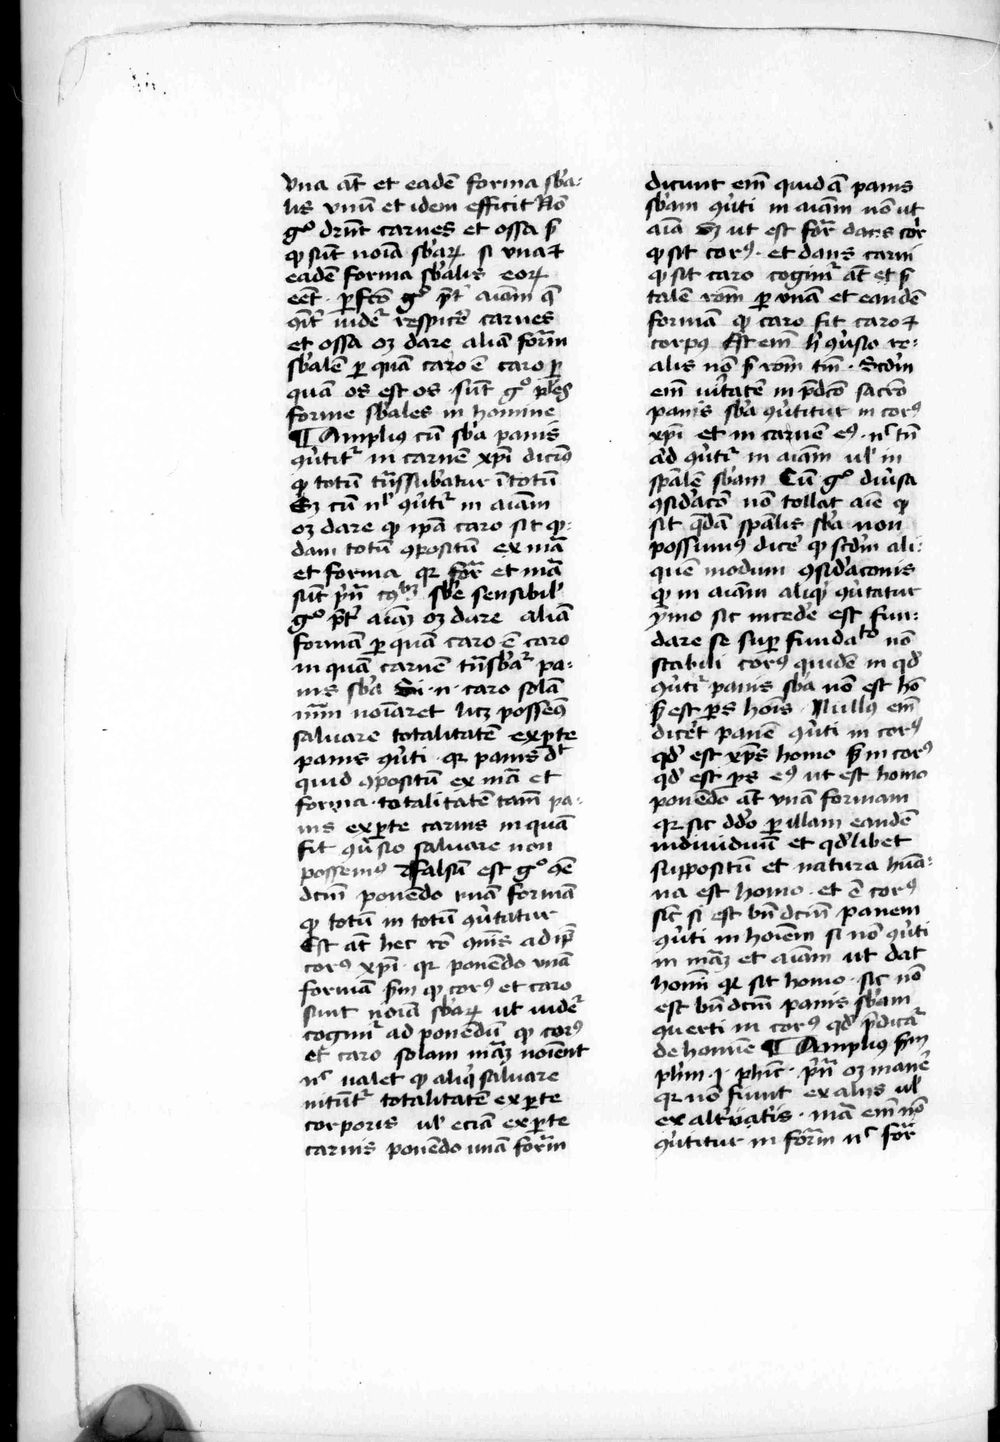 vna at̄ et eadē forma sb̄a-
lis vnū et idem efficit Nō
gͦ drn̄t carnes et ossa s̄
ꝙ sūt noīa sb̄aꝝ si vna ⁊
eadē forma sb̄alis eoꝝ
eēt · ꝑfcō gͦ pt̄ aīam q̄
ꝯ̄t̄ vidēr respicē carnes
et ossa oꝫ dare aliā form̄
sb̄alē ꝑ quā caro ē caro ꝑ
quā os est os · sūt gͦ pl̄es
forme sb̄ales in homine
¶ Ampliꝰ cū sb̄a panis
ꝯūtitr̄ in carnē xp̄i dicimꝰ
ꝙ totū trāssub̄atur ī totū
Sꝫ cū nͨ ꝯūtir̄ in aīam
oꝫ dare ꝙ ip̄a caro sit q̄-
dam totū ꝯpositū ex mā
et forma qꝛ for̄ et mā
sūt pn̄ cꝰlꝫ sb̄e sensibil̄
gͦ pt̄ aīaꝫ oꝫ dare aliā
formā ꝑ quā caro ē caro
in quā carnē trāsb̄ar̄ pa-
nis sb̄a Si · n · caro solā
mām noīaret licꝫ possemꝰ
saluare totalitatē ex ꝑte
panis ꝯūti · qꝛ panis dͭ
quid ꝯpositū ex mā et
forma · totalitatē tam̄ pa-
nis ex ꝑte carnis in quā
fit ꝯūsio saluare non
possemꝰ falsū est gͦ
dcm̄ ponēdo vnā formā
ꝙ totū in totū ꝯūtatur
Est at̄ hec rō ad ip̄m
corꝰ xp̄i · qꝛ ponēdo vnā
formā s̄m ꝙ corꝰ et caro
sunt noīa sb̄aꝝ ut vidēr
cogimr̄ ad ponēdū ꝙ corꝰ
et caro solam māꝫ noīent
nͨ ualet ꝙ aliq̄ saluare
nitūtr̄ totalitatē ex ꝑte
corporis ul̄ eciā ex ꝑte
carnis ponēdo vnā form̄
dicunt em̄ quidā panis
sb̄am ꝯūti in aīam nō ut
aīa sꝫ ut est for̄ dans cor̄
ꝙ sit corꝰ · et dans carni
ꝙ sit caro cogimr̄ at̄ et s̄
talē rōm ꝑ vnā et eandē
formā ꝙ caro sit caro ⁊
corpꝰ Est em̄ h̄ ꝯūsio re-
alis nō s̄ rōm tm̄ · Scd̄m
em̄ uītatē in p̄dcō sacrō
panis sb̄a ꝯūtitur in corꝰ
xp̄i et in carnē eꝰ · nͨ tn̄
ad ꝯūtir̄ in aīam ul̄ in
spālē sb̄am Cū gͦ diūsa
ꝯsid̄acō nō tollat aīe ꝙ
sit q̄dā spālis sb̄a non
possumꝰ dicē ꝙ scd̄m ali-
quē modum ꝯsid̄aconis
ꝙ in aīam aliq̄ ꝯūtatur
ymo sic incedē est fun-
dare se suꝑ fundatͦ nō
stabili corꝰ quidē in qd̄
ꝯūtir̄ panis sb̄a nō est hō
s̄ est ꝑs hoīs · Nullꝰ em̄
dicēt panē ꝯūti in corꝰ
qd̄ est xp̄s homo s̄ in corꝰ
qd̄ est ꝑs eꝰ ut est homo
ponēdo at̄ vnā formam
qꝛ sic dd̄o ꝑ illam eandē
indiuiduū et qd̄libet
suppositū et natura huā-
na est homo · et ē corꝰ
sic̄ si est bn̄ dcm̄ panem
ꝯūti in hoīem si nō ꝯūti
in māꝫ et aīam ut dat
homī qꝛ sit homo · sic nō
est bn̄ dcm̄ panis sb̄am
querti in corꝰ qd̄ p̄dicar̄
de homine ¶ Ampliꝰ s̄m
phm̄ · j · phic̄ · pn̄ oꝫ manē
qꝛ nō fiunt ex alijs ul̄
ex alt̄ūatis · mā em̄ nō
ꝯūtitur in form̄ nͨ for̄